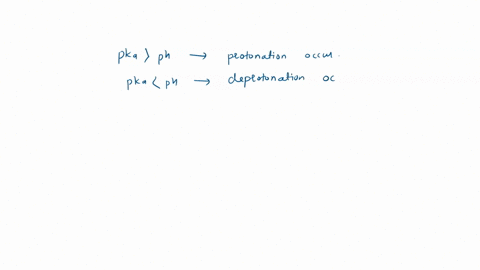 pka > ph → protonation occur.
pka < ph → deprotonation oc